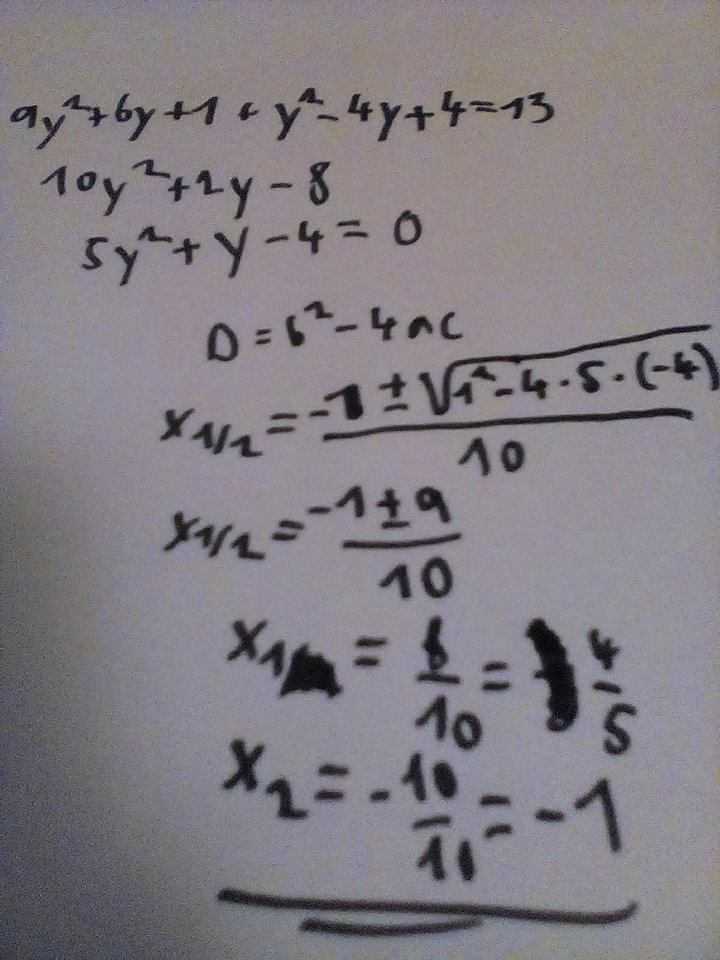 9y²+6y+1 + y²-4y+4=13
10y²+2y-8
5y²+y-4=0
D=b²-4ac
x1/2 = (-1±√(1²-4·5·(-4)))/10
x1/2 = (-1±9)/10
x1 = 8/10 = 4/5
x2 = -10/10 = -1